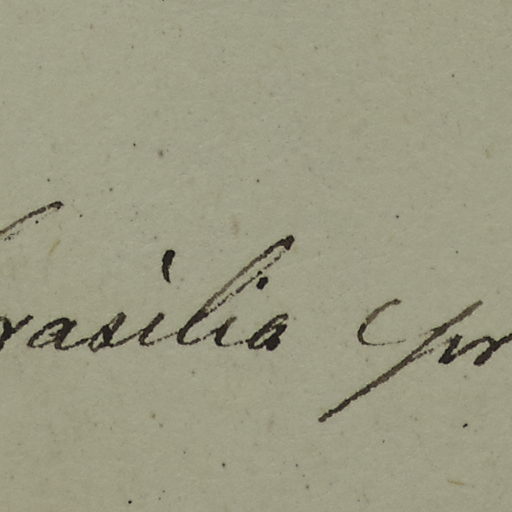 rasilia pr